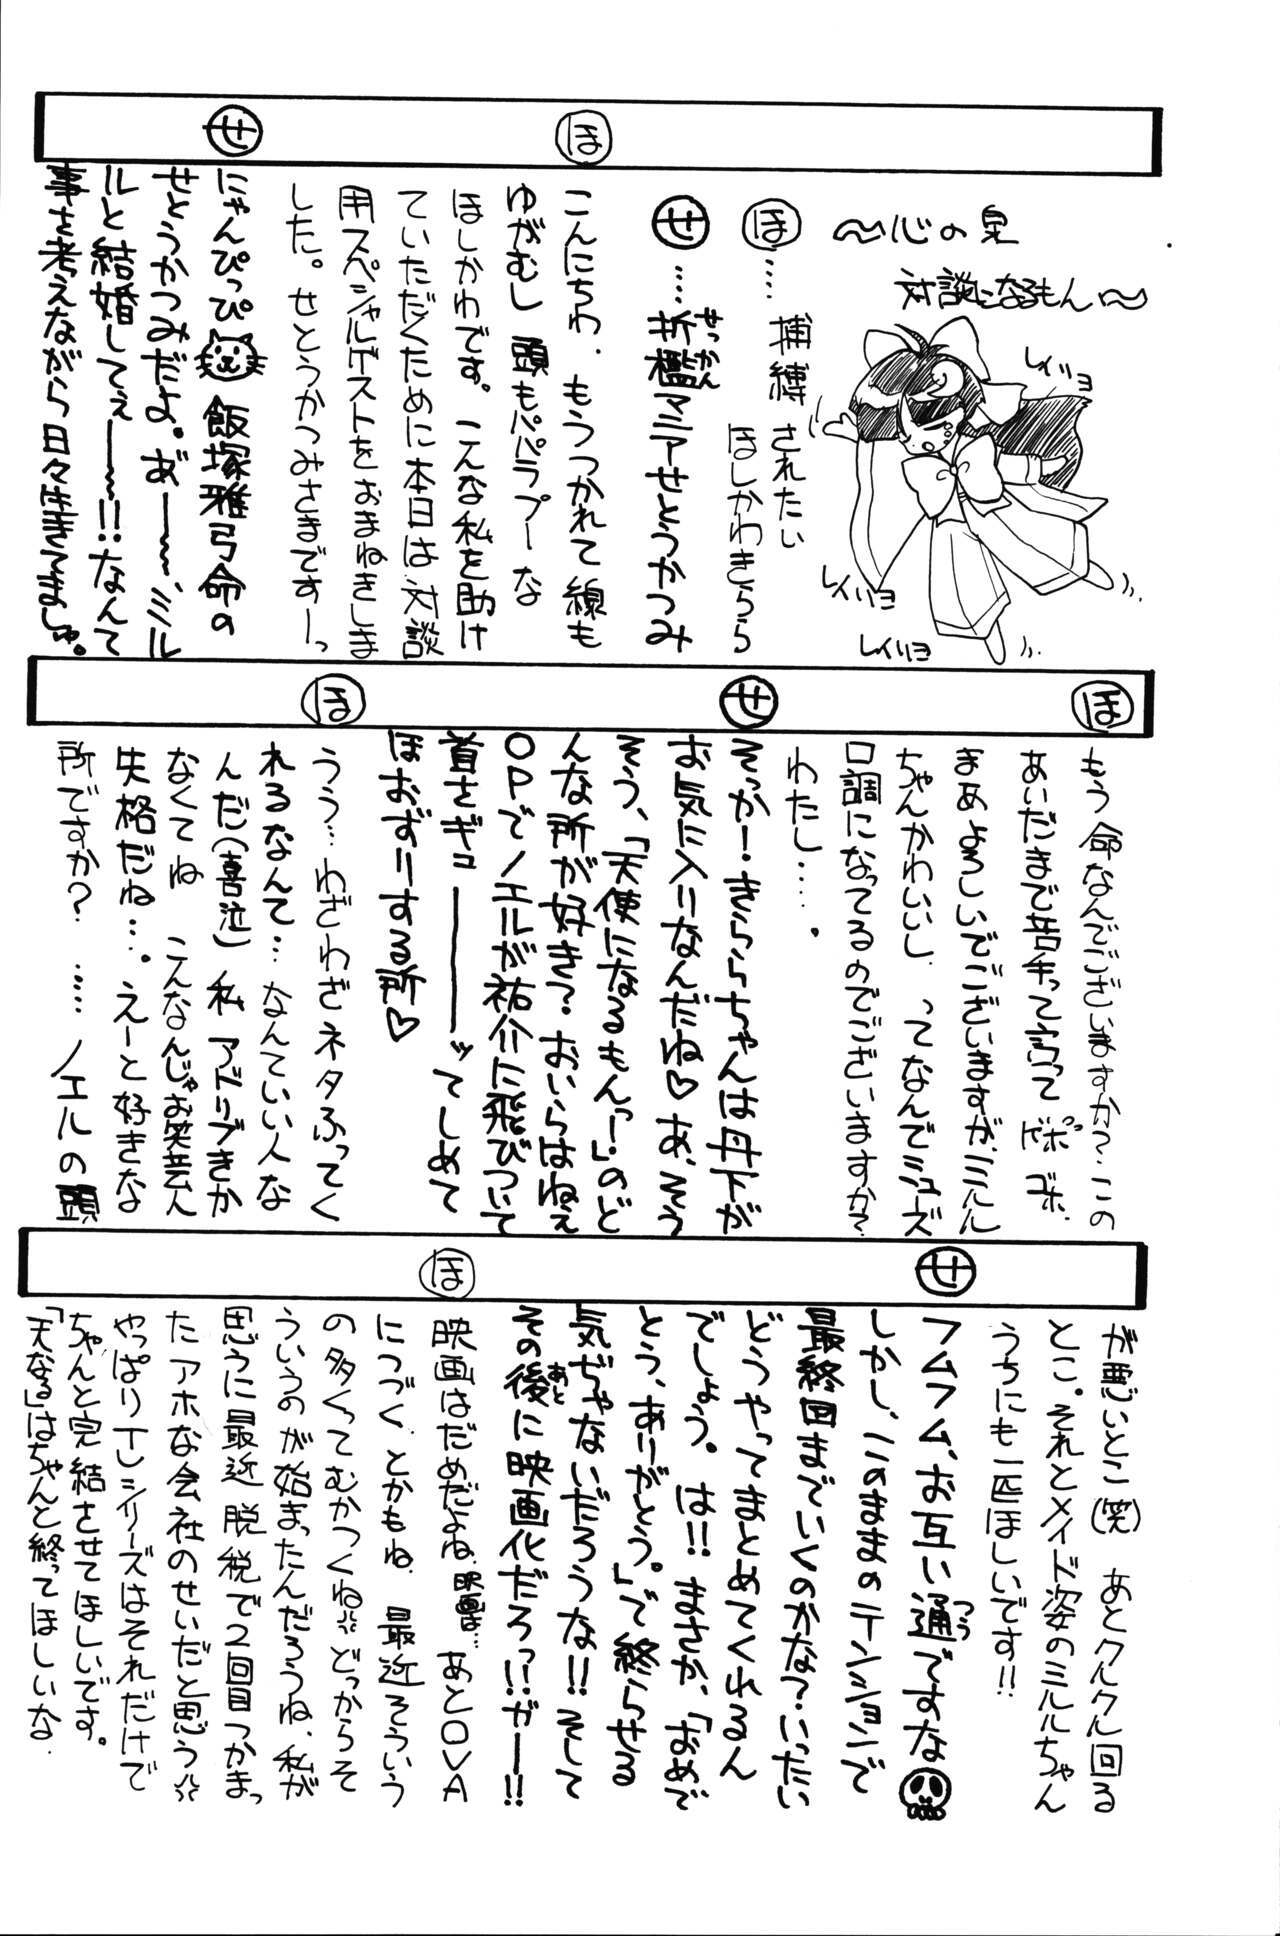 ～心の泉
対談になるもん～
レイリィヨ
レイリィヨ
レイリィヨ
ほ……捕縛されたい
ほしかわきらら
せ……折檻マニアせとうかつみ
せっかん
ほ
こんにちわ、もうつかれて線も
ゆがむし 頭もパパラプーな
ほしかわです。こんな私を助け
ていただくために本日は対談
用スペシャルゲストをおまねきしま
した。せとうかつみさまですーっ
せ
にゃんぴっぴ 飯塚雅弓命の
せとうかつみだよ。あ゛ー～、ミル
ルと結婚してぇー～!!なんて
事を考えながら日々生きてましゅ。
ほ
もう命なんでございますか?この
あいだまで苦手って言って ドボッ ゴホ、
まあよろしいでございますが、ミルル
ちゃんかわいいし、ってなんでミューズ
口調になってるのでございますか?
わたし……。
せ
そっか!きららちゃんは丹下が
お気に入りなんだね♡あ、そう
そう、「天使になるもんっ!」のど
んな所が好き?おいらはねぇ
OPでノエルが祐介に飛びついて
首さギュ――――ッてしめて
ほおずりする所♡
ほ
うう…わざわざネタふってく
れるなんて…なんていい人な
んだ(喜泣) 私 アドリブきか
なくてね こんなんじゃお笑芸人
失格だね…。えーと好きな
所ですか? ……ノエルの頭
が悪いとこ(笑) あとクルクル回る
とこ。それとメイド姿のミルルちゃん
うちにも一匹ほしいです!!
せ
フムフム、お互い通ですな
つう
しかし、このままのテンションで
最終回までいくのかな?いったい
どうやってまとめてくれるん
でしょう。は!!まさか、「おめで
とう、ありがとう。」で終らせる
気ぢゃないだろうな!!そして
その後に映画化だろ?!ガー!!
あと
ほ
映画はだめだよね、映画は… あとOVA
につづく とかもね、最近そういう
の多くってむかつくね どっからそ
ういうのが始まったんだろうね、私が
思うに最近 脱税で2回目つかまっ
たアホな会社のせいだと思う
やっぱりTVシリーズはそれだけで
ちゃんと完結させてほしいです。
「天なる」はちゃんと終ってほしいな、